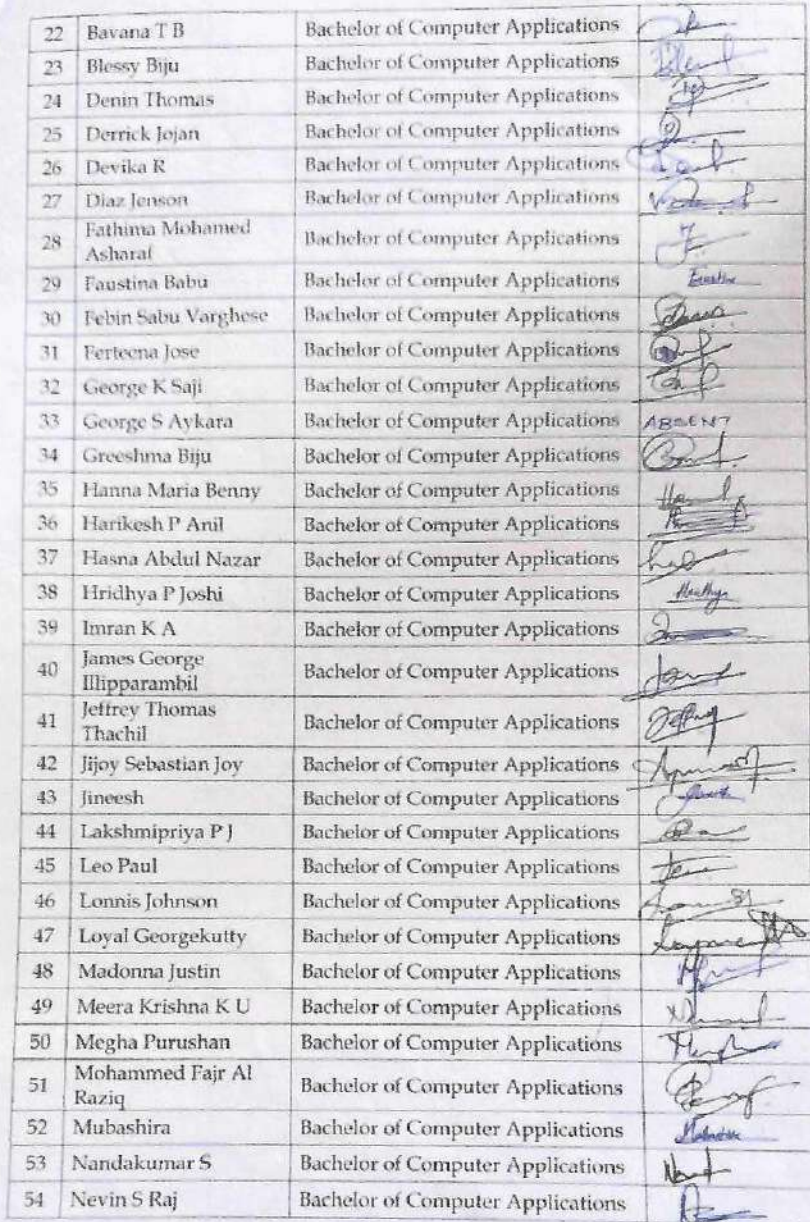 22 Bavana T B Bachelor of Computer Applications
23 Blessy Biju Bachelor of Computer Applications
24 Denin Thomas Bachelor of Computer Applications
25 Derrick Jojan Bachelor of Computer Applications
26 Devika R Bachelor of Computer Applications
27 Diaz Jenson Bachelor of Computer Applications
28 Fathima Mohamed Bachelor of Computer Applications
Asharaf
29 Faustina Babu Bachelor of Computer Applications Faustina
30 Febin Sabu Varghese Bachelor of Computer Applications
31 Ferteena Jose Bachelor of Computer Applications
32 George K Saji Bachelor of Computer Applications
33 George S Aykara Bachelor of Computer Applications ABSENT
34 Greeshma Biju Bachelor of Computer Applications
35 Hanna Maria Benny Bachelor of Computer Applications
36 Harikesh P Anil Bachelor of Computer Applications
37 Hasna Abdul Nazar Bachelor of Computer Applications
38 Hridhya P Joshi Bachelor of Computer Applications
39 Imran K A Bachelor of Computer Applications
40 James George Bachelor of Computer Applications
Illipparambil
41 Jeffrey Thomas Bachelor of Computer Applications
Thachil
42 Jijoy Sebastian Joy Bachelor of Computer Applications
43 Jineesh Bachelor of Computer Applications
44 Lakshmipriya P J Bachelor of Computer Applications
45 Leo Paul Bachelor of Computer Applications
46 Lonnis Johnson Bachelor of Computer Applications
47 Loyal Georgekutty Bachelor of Computer Applications
48 Madonna Justin Bachelor of Computer Applications
49 Meera Krishna K U Bachelor of Computer Applications
50 Megha Purushan Bachelor of Computer Applications
51 Mohammed Fajr Al Bachelor of Computer Applications
Raziq
52 Mubashira Bachelor of Computer Applications
53 Nandakumar S Bachelor of Computer Applications
54 Nevin S Raj Bachelor of Computer Applications